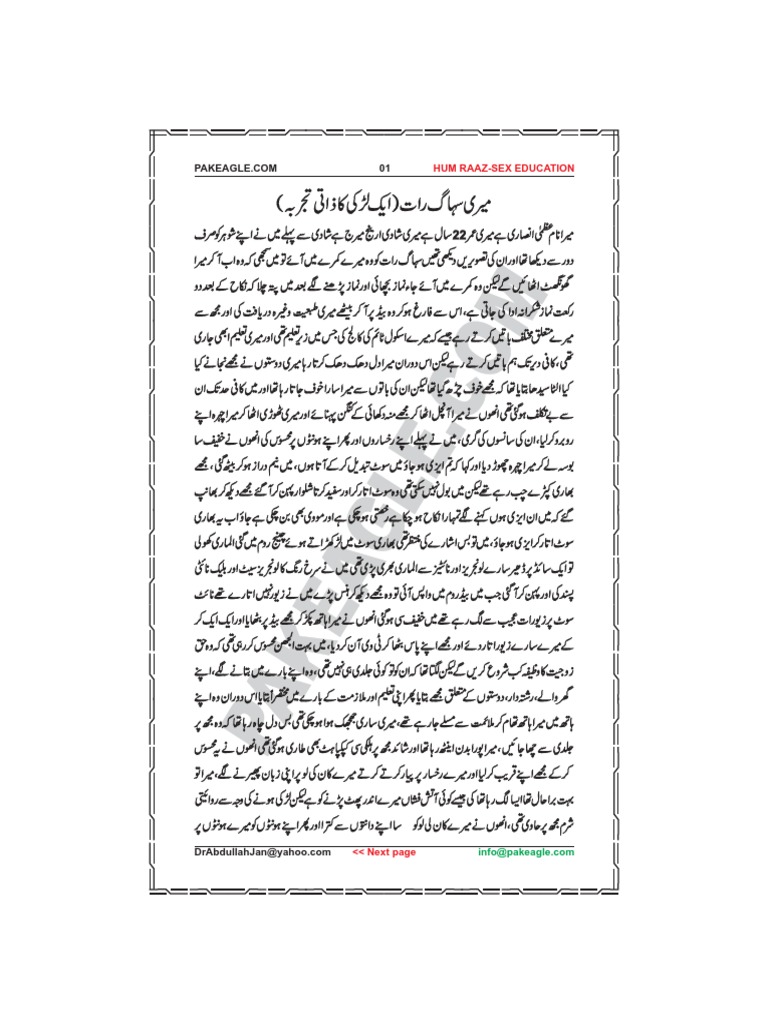 PAKEAGLE.COM 01 HUM RAAZ-SEX EDUCATION
میری سہاگ رات (ایک لڑکی کا ذاتی تجربہ)
میرا نام عظمیٰ انصاری ہے میری عمر 22 سال ہے میری شادی ارینج میرج ہے شادی سے پہلے میں نے اپنے شوہر کو صرف
دور سے دیکھا تھا اور ان کی تصویریں دیکھی تھیں سہاگ رات کو وہ میرے کمرے میں آئے تو میں سمجھی کہ وہ اب آ کر میرا
گھونگھٹ اٹھائیں گے لیکن وہ کمرے میں آئے جاء نماز بچھائی اور نماز پڑھنے لگے بعد میں پتہ چلا کہ نکاح کے بعد دو
رکعت نماز شکرانہ ادا کی جاتی ہے، اس سے فارغ ہو کر وہ بیڈ پر آ کر بیٹھے میری طبیعت وغیرہ دریافت کی اور مجھ سے
میرے متعلق مختلف باتیں کرتے رہے جیسے کہ میرے اسکول ٹائم کی کالج کی جس میں زیر تعلیم تھی اور میری تعلیم ابھی جاری
تھی، کافی دیر تک ہم باتیں کرتے رہے لیکن اس دوران میرا دل دھک دھک کرتا رہا میری دوستوں نے مجھے نجانے کیا
کیا الٹا سیدھا بتایا تھا کہ مجھے خوف چڑھ گیا تھا لیکن ان کی باتوں سے میرا سارا خوف جاتا رہا تھا اور میں کافی حد تک ان
سے بے تکلف ہو گئی تھی انھوں نے میرا آنچل اٹھا کر مجھے منہ دکھائی کے کنگن پہنائے اور میری ٹھوڑی اٹھا کر میرا چہرہ اپنے
روبرو کر لیا، ان کی سانسوں کی گرمی، میں نے پہلے اپنے رخساروں اور پھر اپنے ہونٹوں پر محسوس کی انھوں نے خفیف سا
بوسہ لے کر میرا چہرہ چھوڑ دیا اور کہا کہ تم ایزی ہو جاؤ میں سوٹ تبدیل کر کے آتا ہوں، میں نیم دراز ہو کر بیٹھ گئی، مجھے
بھاری کپڑے چب رہے تھے لیکن میں بول نہیں سکتی تھی وہ سوٹ اتار کر اور سفید کرتا شلوار پہن کر آ گئے مجھے دیکھ کر بھانپ
گئے کہ میں ان ایزی ہوں کہنے لگے تمہارا نکاح ہو چکا ہے رخصتی ہو چکی ہے اور مووی بھی بن چکی ہے جاؤ اب یہ بھاری
سوٹ اتار کر ایزی ہو جاؤ، میں تو بس اشارے کی منتظر تھی بھاری سوٹ میں لڑکھڑاتے ہوئے چینج روم میں گئی الماری کھولی
تو ایک سائڈ پر ڈھیر سارے لونجریز اور نائٹیز سے الماری بھری پڑی تھی میں نے سرخ رنگ کا لونجریز سیٹ اور بلیک نائٹی
پسند کی اور پہن کر آ گئی جب میں بیڈ روم میں واپس آئی تو وہ مجھے دیکھ کر ہنس پڑے میں نے زیور نہیں اتارے تھے نائٹ
سوٹ پر زیورات عجیب سے لگ رہے تھے میں خفیف سی ہو گئی انھوں نے میرا ہاتھ پکڑ کر مجھے بیڈ پر بٹھایا اور ایک ایک کر
کے میرے سارے زیور اتار دئے اور مجھے اپنے پاس بٹھا کر ٹی وی آن کر دیا، میں بہت الجھن محسوس کر رہی تھی کہ وہ حق
زوجیت کا وظیفہ کب شروع کریں گے لیکن لگتا تھا کہ ان کو تو کوئی جلدی ہی نہیں تھی، وہ اپنے بارے میں بتانے لگے، اپنے
گھر والے، رشتہ دار، دوستوں کے متعلق مجھے بتایا پھر اپنی تعلیم اور ملازمت کے بارے میں مختصراً بتایا اس دوران وہ اپنے
ہاتھ میں میرا ہاتھ تھام کر ملائمت سے مسلے جا رہے تھے، میری ساری جھجھک ہوا ہو چکی تھی بس دل چاہ رہا تھا کہ وہ مجھ پر
جلدی سے چھا جائیں، میرا پورا بدن اینٹھ رہا تھا اور شائد مجھ پر ہلکی سی کپکپاہٹ بھی طاری ہو گئی تھی انھوں نے یہ محسوس
کر کے مجھے اپنے قریب کر لیا اور میرے رخسار پر پیار کرتے کرتے میرے کان کی لو پر اپنی زبان پھیرنے لگے، میرا تو
بہت برا حال تھا ایسا لگ رہا تھا کی جیسے کوئی آتش فشاں میرے اندر پھٹ پڑنے کو ہے لیکن لڑکی ہونے کی وجہ سے روائیتی
شرم مجھ پر حاوی تھی، انھوں نے میرے کان لی لو کو سا اپنے دانتوں سے کترا اور پھر اپنے ہونٹوں کو میرے ہونٹوں پر
DrAbdullahJan@yahoo.com << Next page info@pakeagle.com
PAKEAGLE.COM